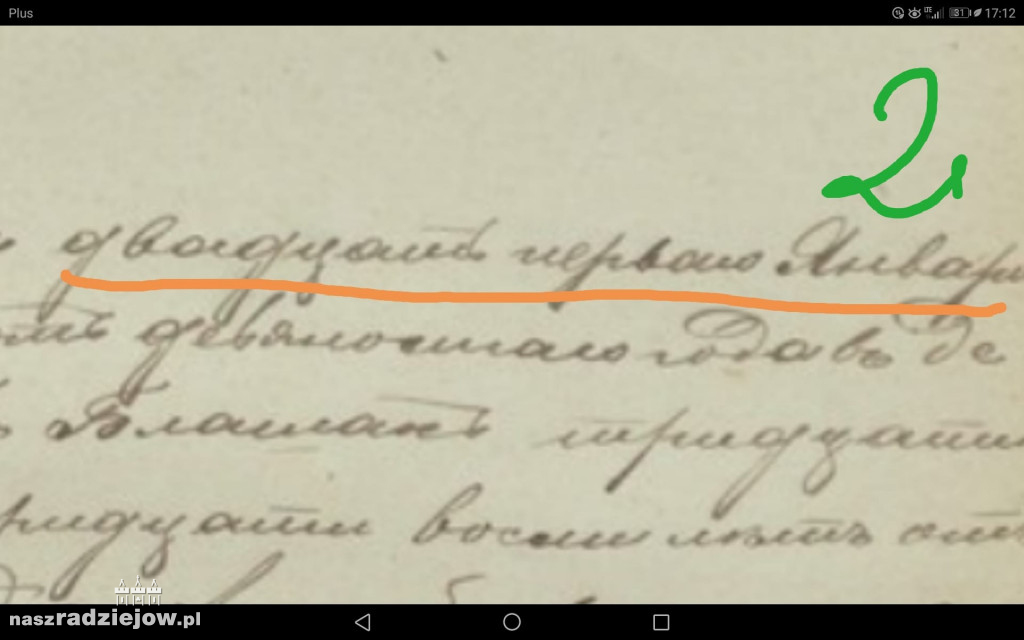 Plus 31 17:12
2
двадцать перваго Января
девяностаго года въ де
тридцати
тридцати восьми лѣтъ отъ
naszradziejow.pl